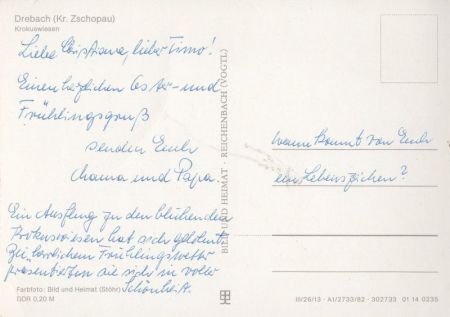 Drebach (Kr. Zschopau)
Krokuswiesen
Liebe Christiane, lieber Timo!
Einen herzlichen Oster- und
Frühlingsgruß
senden Euch
Mama und Papa
Ein Ausflug zu den blühenden
Krokuswiesen hat sich gelohnt.
Bei herrlichem Frühlingswetter
präsentierten sie sich in voller
Schönheit.
Farbfoto: Bild und Heimat (Stöhr)
DDR 0,20 M
BILD UND HEIMAT · REICHENBACH (VOGTL)
wann kommt von Euch
ein Lebenszeichen?
III/26/13 · A1/2733/82 · 302733 01 14 0235